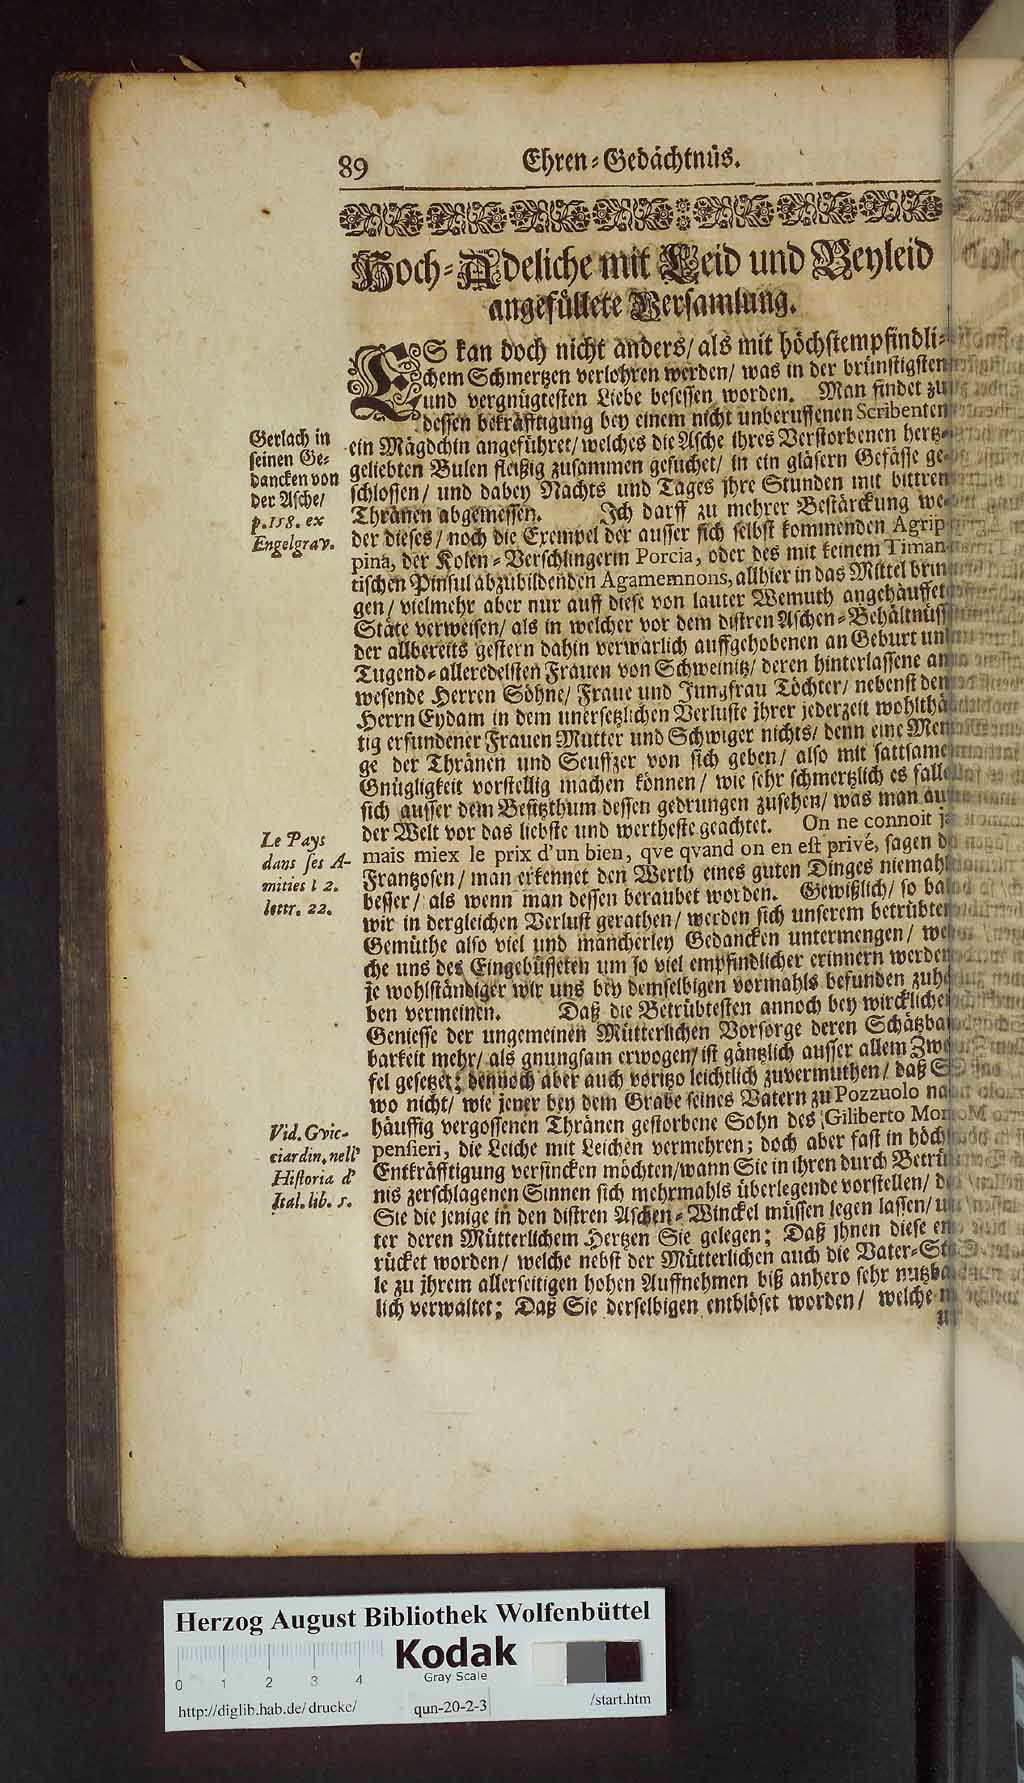 89 Ehren-Gedächtnüs.
Hoch-Adeliche mit Leid und Beyleid
angefüllete Versamlung.
ES kan doch nicht anders/ als mit höchstempfindli-
chem Schmertzen verlohren werden/ was in der brünstigsten
und vergnügtesten Liebe besessen worden. Man findet zu
dessen bekräfftigung bey einem nicht unberuffenen Scribenten
ein Mägdchin angeführet/ welches die Asche ihres Verstorbenen hertz-
geliebten Bulen fleißig zusammen gesuchet/ in ein gläsern Gefässe ge-
schlossen/ und dabey Nachts und Tages jhre Stunden mit bittren
Thränen abgemessen. Ich darff zu mehrer Bestärckung we-
der dieses/ noch die Exempel der ausser sich selbst kommenden Agrip
pina, der Kolen-Verschlingerin Porcia, oder des mit keinem Timan
tischen Pinsul abzubildenden Agamemnons, allhier in das Mittel brin
gen/ vielmehr aber nur auff diese von lauter Wemuth angehäuffet
Stäte verweisen/ als in welcher vor dem distren Aschen-Behältnüss
der allbereits gestern dahin verwarlich auffgehobenen an Geburt un
Tugend-alleredelsten Frauen von Schweinitz/ deren hinterlassene an
wesende Herren Söhne/ Fraue und Jungfrau Töchter/ nebenst den
Herrn Eydam in dem unersetzlichen Verluste jhrer jederzeit wohlthä
tig erfundener Frauen Mutter und Schwiger nichts/ denn eine Men
ge der Thränen und Seuffzer von sich geben/ also mit sattsame
Gnügligkeit vorstellig machen können/ wie sehr schmertzlich es falle
sich ausser dem Besitzthum dessen gedrungen zusehen/ was man au
der Welt vor das liebste und wertheste geachtet. On ne connoit ja
mais miex le prix d'un bien, qve qvand on en est privé, sagen d
Frantzosen/ man erkennet den Werth eines guten Dinges niemahl
besser/ als wenn man dessen beraubet worden. Gewißlich/ so ba
wir in dergleichen Verlust gerathen/ werden sich unserem betrübte
Gemüthe also viel und mancherley Gedancken untermengen/ we
che uns des Eingebüsseten um so viel empfindlicher erinnern werden
je wohlständiger wir uns bey demselbigen vormahls befunden zuh
ben vermeinen. Daß die Betrübtesten annoch bey wircklichen
Geniesse der ungemeinen Mütterlichen Vorsorge deren Schätzba
barkeit mehr/ als gnungsam erwogen/ ist gäntzlich ausser allem Zwe
fel gesetzet; dennoch aber auch voritzo leichtlich zuvermuthen/ daß S
wo nicht/ wie jener bey dem Grabe seines Vatern zu Pozzuolo na
häuffig vergossenen Thränen gestorbene Sohn des Giliberto Mo
pensieri, die Leiche mit Leichen vermehren; doch aber fast in höch
Entkräfftigung versincken möchten/ wann Sie in ihren durch Betrü
nis zerschlagenen Sinnen sich mehrmahls überlegende vorstellen/ d
Sie die jenige in den distren Aschen-Winckel müssen legen lassen/ u
ter deren Mütterlichem Hertzen Sie gelegen; Daß jhnen diese en
rücket worden/ welche nebst der Mütterlichen auch die Vater-St
le zu jhrem allerseitigen hohen Auffnehmen biß anhero sehr nutzba
lich verwaltet; Daß Sie derselbigen entblöset worden/ welche
Gerlach in
seinen Ge-
dancken von
der Asche/
p. 158. ex
Engelgrav.
Le Pays
dans ses A-
mities l 2.
lettr. 22.
Vid. Gvic-
ciardin, nell'
Historia d'
Ital. lib. 5.
Herzog August Bibliothek Wolfenbüttel
Kodak
Gray Scale
0 1 2 3 4
http://diglib.hab.de/drucke/ qun-20-2-3 /start.htm